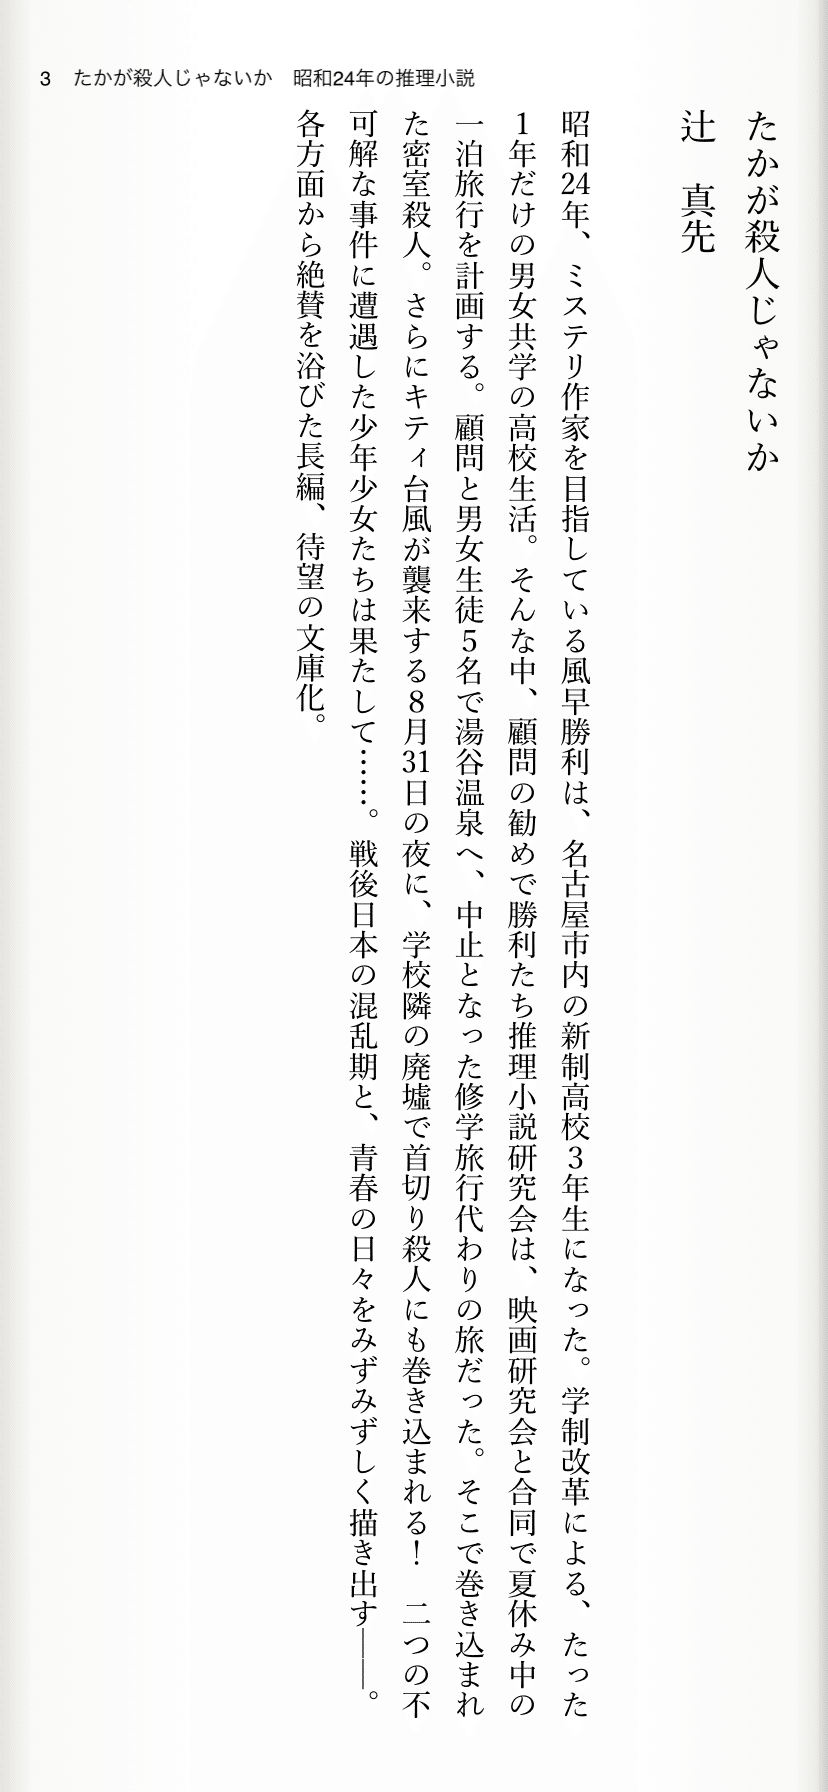 3　たかが殺人じゃないか　昭和24年の推理小説
たかが殺人じゃないか
辻　真先
昭和24年、ミステリ作家を目指している風早勝利は、名古屋市内の新制高校３年生になった。学制改革による、たった
１年だけの男女共学の高校生活。そんな中、顧問の勧めで勝利たち推理小説研究会は、映画研究会と合同で夏休み中の
一泊旅行を計画する。顧問と男女生徒５名で湯谷温泉へ、中止となった修学旅行代わりの旅だった。そこで巻き込まれ
た密室殺人。さらにキティ台風が襲来する８月31日の夜に、学校隣の廃墟で首切り殺人にも巻き込まれる！　二つの不
可解な事件に遭遇した少年少女たちは果たして……。戦後日本の混乱期と、青春の日々をみずみずしく描き出す――。
各方面から絶賛を浴びた長編、待望の文庫化。